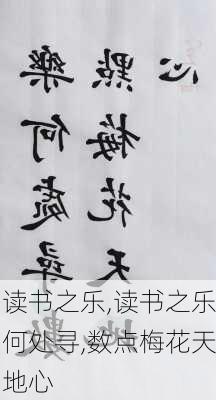 樂何處尋數
點梅花天地
心
读书之乐,读书之乐
何处寻,数点梅花天
地心